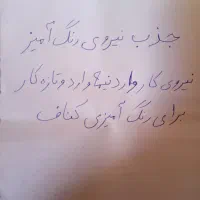 جذب نیروی رنگ آمیز
نیروی کار وارد نیمه وارد و تازه کار
برای رنگ آمیزی کناف